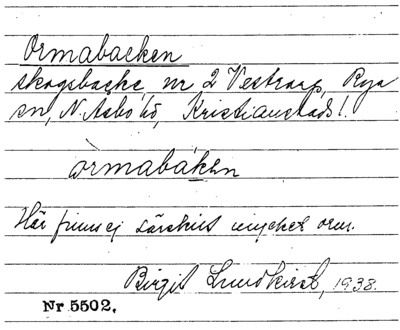 Ormabacken
skogsbacke, nr 2 Vestrarp, Rya
sn, N. Åsbo hd, Kristianstads l.
òrmabáken
Här finns ej särskilt mycket orm.
Birgit Lundkvist, 1938.
Nr 5502.